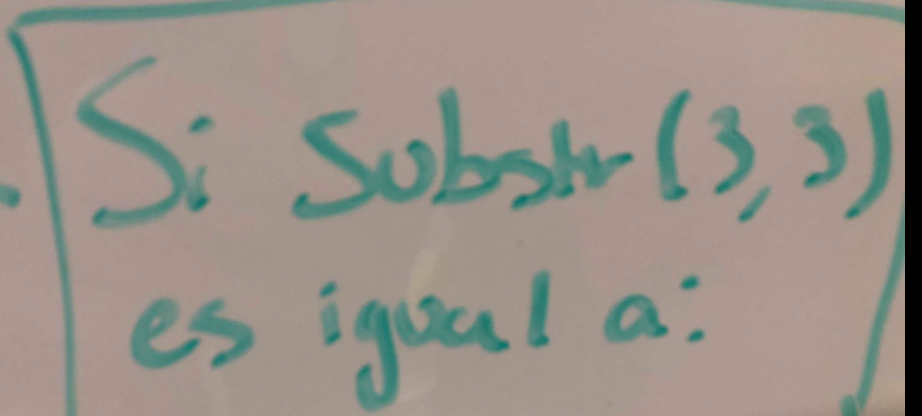 Si Substr(3,3)
es igual a: